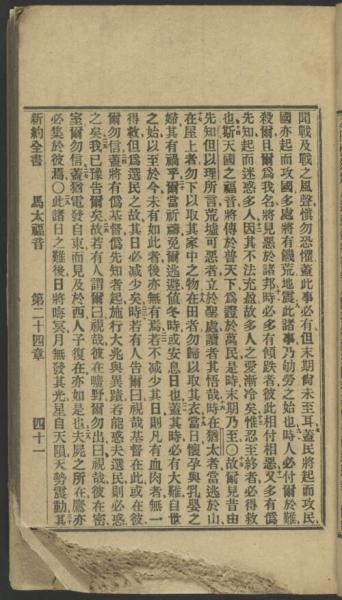 聞戰及戰之風聲愼勿恐懼蓋此事必有但末期尙未至耳蓋民將起而攻民
國亦起而攻國多處將有饑荒地震此諸事乃劬勞之始也時人必付爾於難
殺爾且爾爲我名將見惡於諸邦時必多有傾跌者彼此相付相惡又多有僞
先知起而迷惑多人因其不法充盈故多人之愛漸冷矣惟忍至終者必得救
也斯天國之福音將傳於普天下爲證於萬民是時末期乃至〇故爾見昔由
先知但以理所言荒墟可惡者立於聖處讀者其悟哉時在猶太者當逃於山
在屋上者勿下以取其家中之物在田者勿歸以取其衣當日懷孕與乳嬰之
婦其有禍乎爾當祈禱免爾逃避值冬時或安息日也蓋其時必有大難自世
之始以至於今未有如此者後亦無有焉若不減少其日則凡有血肉者無一
得救但爲選民之故其日必減少矣時若有人告爾曰視哉基督在此或在彼
爾勿信蓋將有僞基督僞先知者起施行大兆與異蹟若能惑夫選民則必惑
之矣我已豫告爾矣故若有人謂爾曰視哉彼在曠野爾勿出曰視哉彼在密
室爾勿信蓋猶電發自東而見及於西人子復在亦如是也夫屍之所在鷹亦
必集於彼焉〇此諸日之難後日將晦冥月無發其光星自天隕天勢震動其
新約全書 馬太福音 第二十四章 四十一